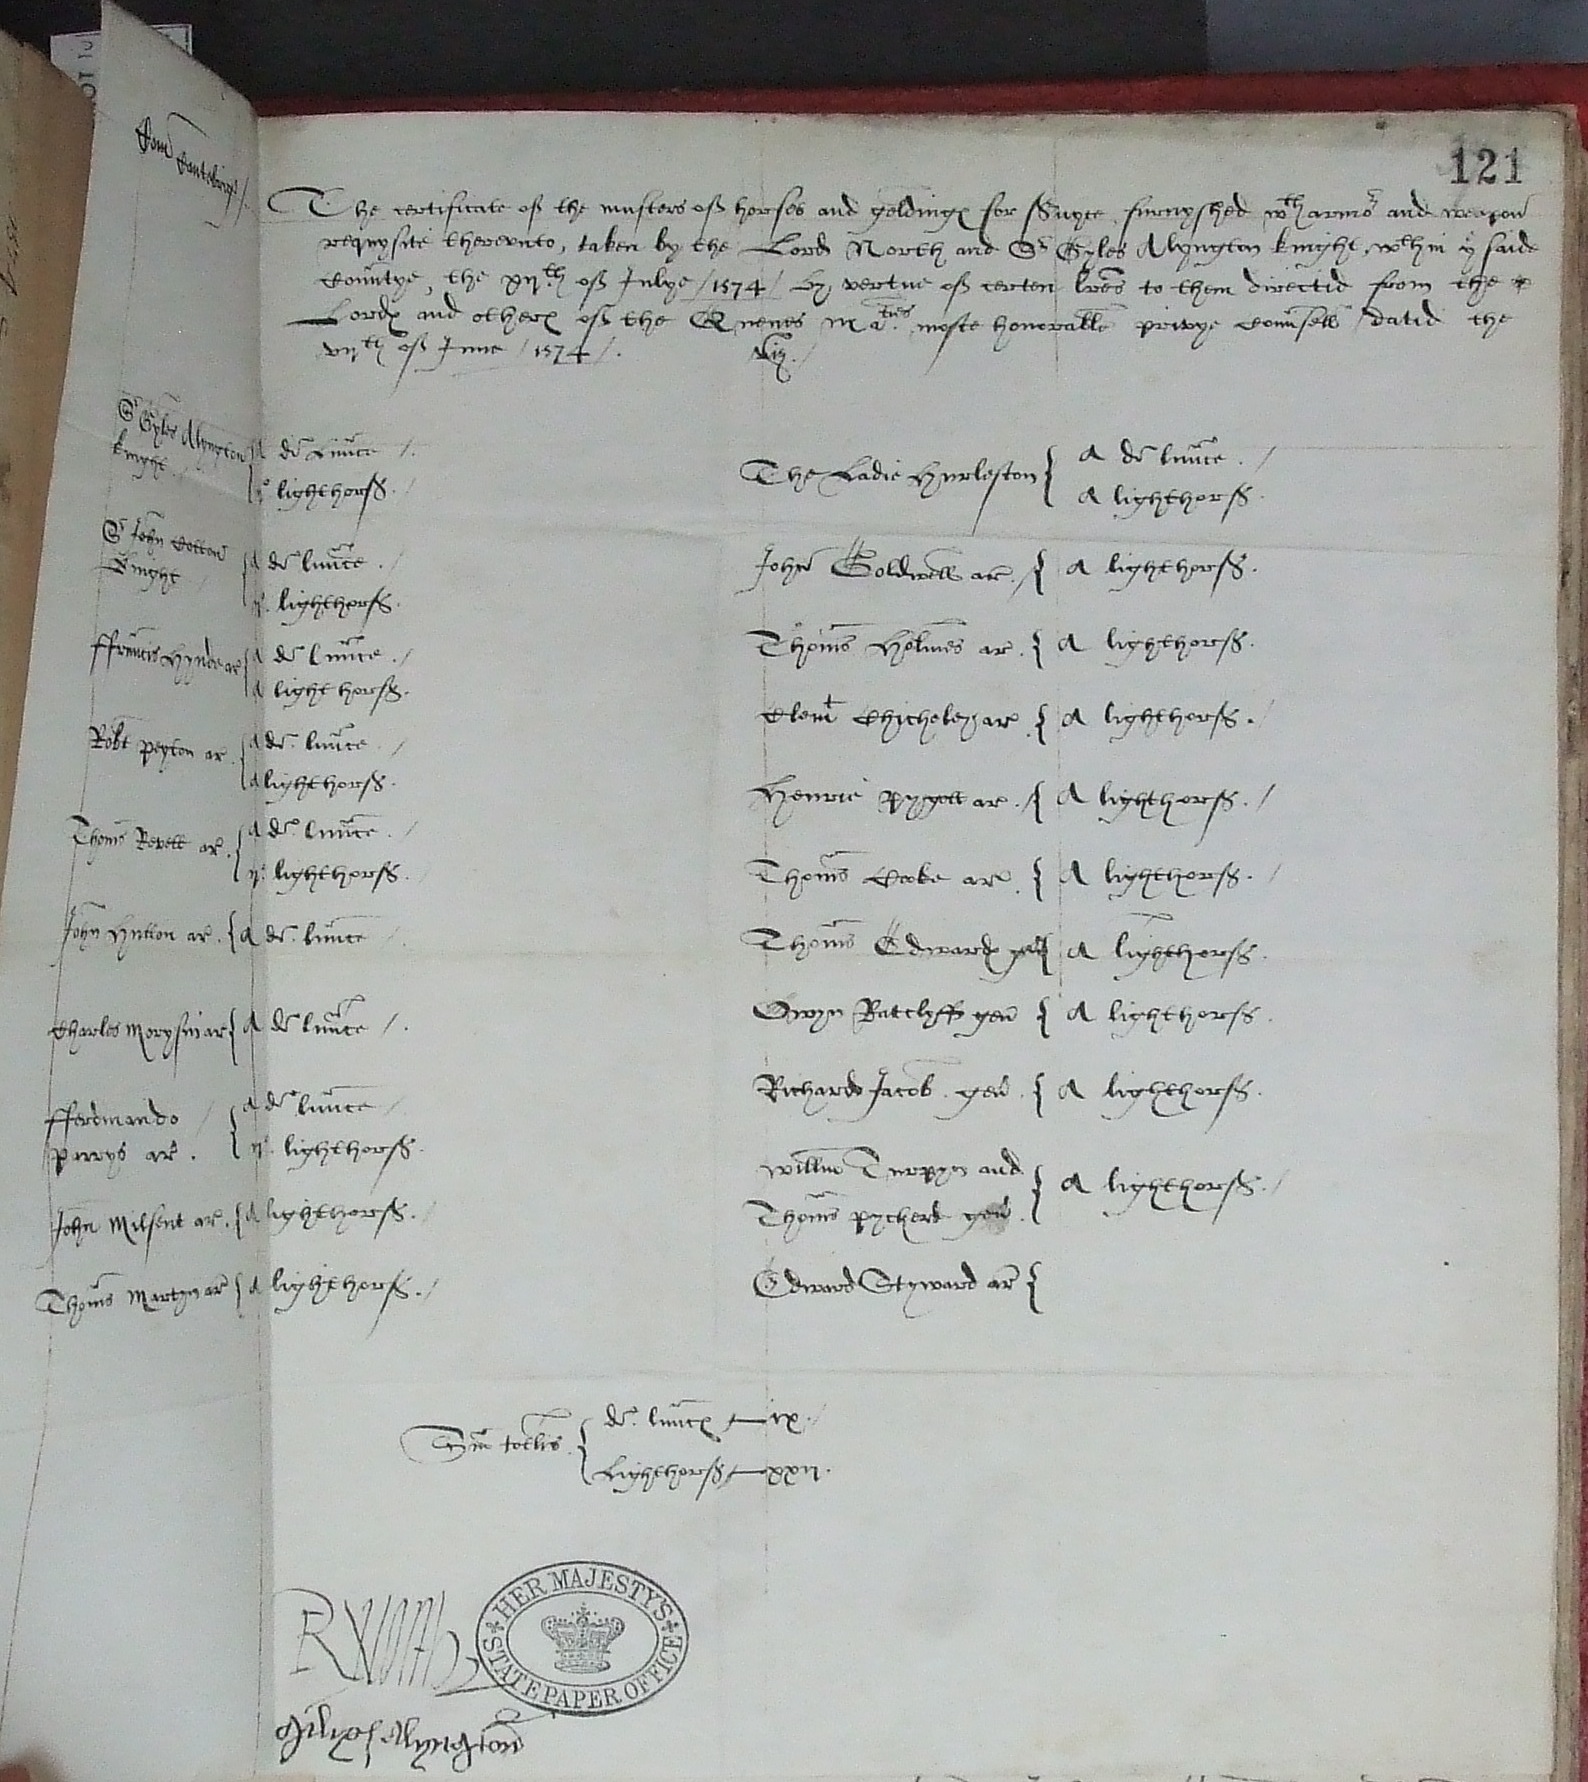 121
Com Cantebrig /.
The certificate off the musters off horses and geldinges for servyce furnyshed wth armor and weapon
requysite therevnto, taken by the Lord North and Sr Gyles Alyngton knight, wthin ye said
Countye, the xijth off Julye / 1574 / By vertue off certen lres to them directid from the
Lordes and others off the Quenes Maties moste honorable privye Counsell datid the
vijth off June / 1574 /. viz. /
Sr Gyles Alyngton knyght { A de: launce /.
ij lighthorss. /
Sr John Cotton Knight { A de: launce. /
ij. lighthorss.
ffrancis Hynde ar { A de: launce. /
A light horss.
Robt Peyton ar { A de: launce. /
A lighthorss.
Thoms Revell ar. { A de: launce. /
ij. lighthorss.
John Hutton ar. { A de: launce
Charles Morysin ar { A de: launce /.
fferdinando Parrys ar. { A de: launce /
ij. lighthorss.
John Milsent ar. { A lighthorss. /
Thoms Martyn ar { A lighthorss. /
The Ladie Hurleston { A de: launce. /
A lighthorss.
John Goldwell ar. / { A lighthorss.
Thoms Holmes ar. { A lighthorss.
Clemt Chicheley ar. { A lighthorss. /
Henrie Pygott ar. / { A lighthorss. /
Thoms Cooke ar. { A lighthorss. /
Thoms Edwardes gen { A lighthorss.
Owyn Ratclyff gen { A lighthorss.
Richard Jacob. gen. { A lighthorss.
Willm Turpyn and
Thoms Pyckerd gen. { A lighthorss. /
Edward Styward ar {
Sum totlis. { de: launces — ix. /
Lighthorss — xxij.
R North
HER MAJESTY'S STATE PAPER OFFICE
Gilys Alyngton